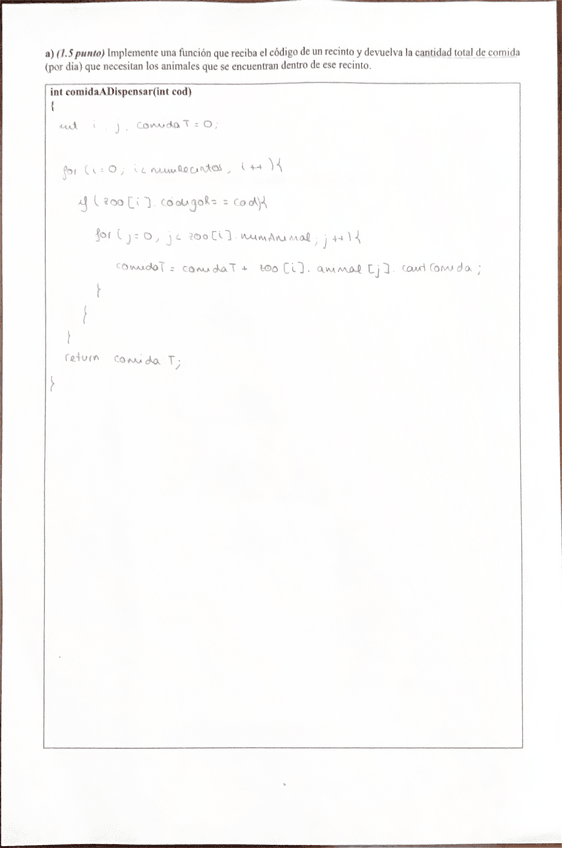 a) (1.5 punto) Implemente una función que reciba el código de un recinto y devuelva la cantidad total de comida
(por día) que necesitan los animales que se encuentran dentro de ese recinto.
int comidaADispensar(int cod)
{
int i, j, comidaT = 0;
for (i=0, i<numRecintos, i++){
if (zoo[i].codigoR == cod){
for (j=0, j< zoo[i].numAnimal, j++){
comidaT = comidaT + zoo[i].animal[j].cantComida;
}
}
}
return comidaT;
}